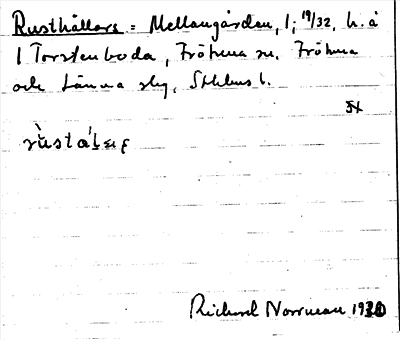 Rusthållars = Mellangården, 1; 19/32, h. å
1 Torstenboda, Frötuna sn. Frötuna
och Länna slg, Sthlms l.
rùstáḷaʂ
Richard Norrman 1930